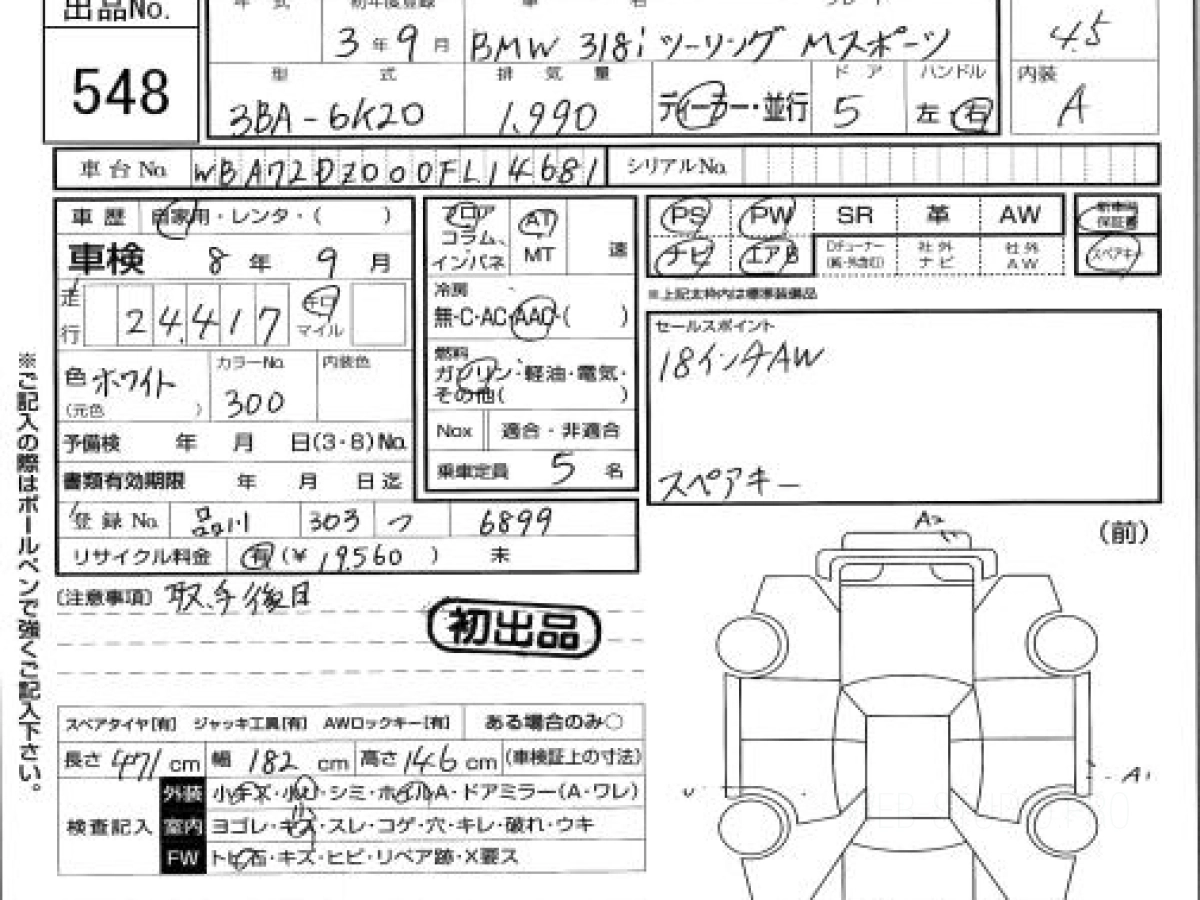 出品No.
548
年 式 初年度登録 車 名 グレード
3 年 9 月 BMW 318i ツーリング Mスポーツ 4.5
型 式 排 気 量 ドア ハンドル 内装
3BA-6K20 1,990 ディーラー・並行 5 左 右 A
車台No. WBA72DZ000FL14681 シリアルNo.
車 歴 自家用・レンタ・( )
車検 8 年 9 月
走行 24,417 キロ マイル
色 ホワイト カラーNo. 300 内装色
(元色 )
予備検 年 月 日(3・8)No.
書類有効期限 年 月 日迄
登録No. 品川 303 つ 6899
リサイクル料金 有 (¥ 19,560 ) 未
フロア コラム、インパネ AT MT 速
冷房
無・C・AC・AAC・( )
燃料
ガソリン・軽油・電気・
その他( )
Nox 適合・非適合
乗車定員 5 名
PS PW SR 革 AW 新車時保証書
ナビ エアB 社外ナビ 社外AW スペアキー
※上記太枠内は標準装備品
セールスポイント
18インチAW
スペアキー
※ご記入の際はボールペンで強くご記入下さい。
(注意事項) 取、手後日
初出品
スペアタイヤ[有] ジャッキ工具[有] AWロックキー[有] ある場合のみ○
長さ 471 cm 幅 182 cm 高さ 146 cm (車検証上の寸法)
検査記入
外装 小キズ・小凹・シミ・ホイルA・ドアミラー(A・ワレ)
室内 ヨゴレ・キズ・スレ・コゲ・穴・キレ・破れ・ウキ
FW トビ石・キズ・ヒビ・リペア跡・X要ス
A2
(前)
A1